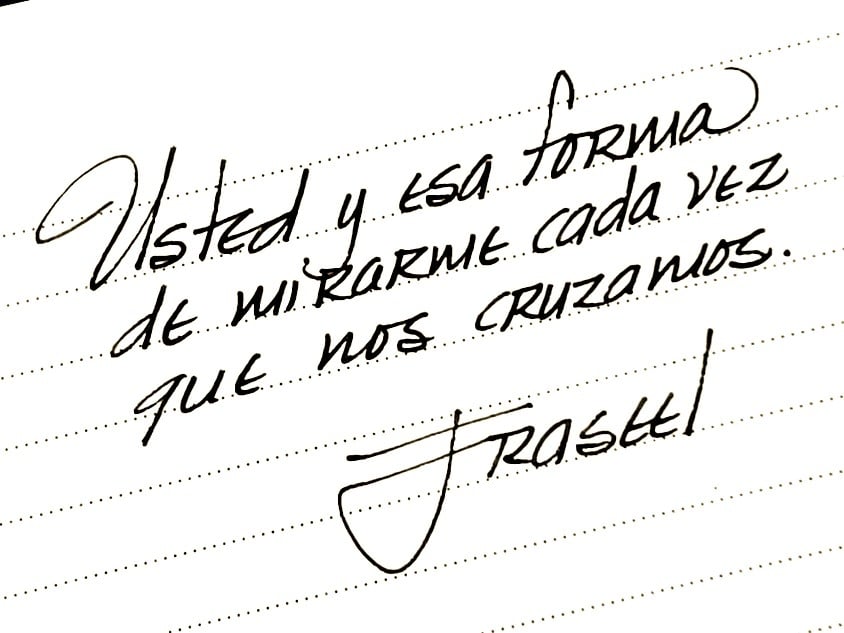 Usted y esa forma
de mirarme cada vez
que nos cruzamos.
Fraseel